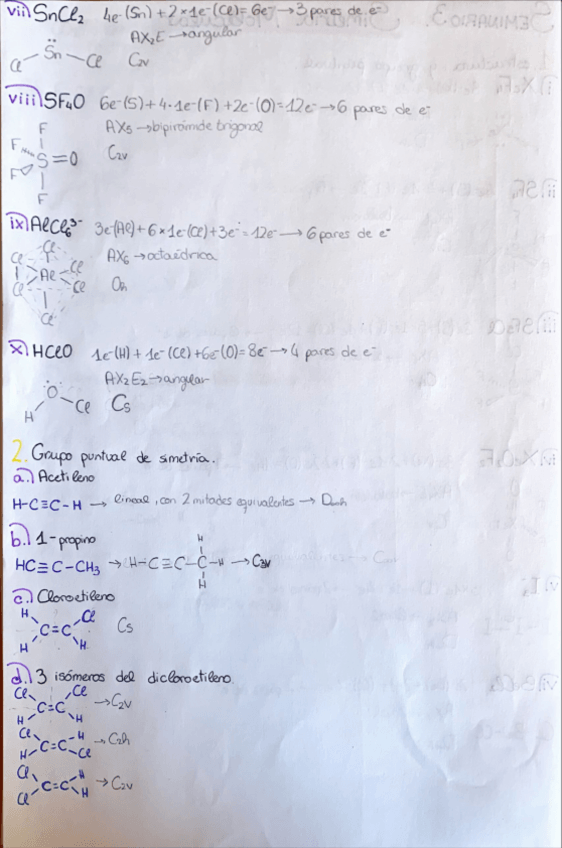 vii) SnCl₂ 4e⁻(Sn) + 2×1e⁻(Cl) = 6e⁻ → 3 pares de e⁻
AX₂E → angular
S̈n
Cl Cl C₂ᵥ
viii) SF₄O 6e⁻(S) + 4·1e⁻(F) + 2e⁻(O) = 12e⁻ → 6 pares de e⁻
AX₅ → bipirámide trigonal
F
F S=O C₂ᵥ
F
F
ix) AlCl₆³⁻ 3e⁻(Al) + 6×1e⁻(Cl) + 3e⁻ = 12e⁻ → 6 pares de e⁻
AX₆ → octaédrica
Cl
Cl Al Cl
Cl Cl Oh
Cl
x) HClO 1e⁻(H) + 1e⁻(Cl) + 6e⁻(O) = 8e⁻ → 4 pares de e⁻
AX₂E₂ → angular
O
H Cl Cs
2. Grupo puntual de simetría.
a.) Acetileno
H-C≡C-H → lineal, con 2 mitades equivalentes → D∞h
b.) 1-propino
H
HC≡C-CH₃ → H-C≡C-C-H → C₃ᵥ
H
c.) Cloroetileno
H Cl
C=C Cs
H H
d.) 3 isómeros del dicloroetileno.
Cl Cl
C=C → C₂ᵥ
H H
Cl H
C=C → C₂h
H Cl
Cl H
C=C → C₂ᵥ
Cl H